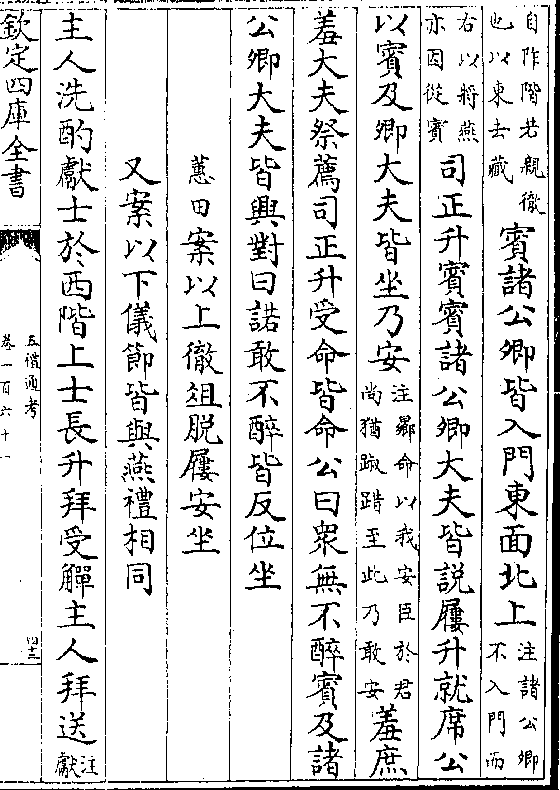 自阼階若親徹
也以東去藏
賓諸公卿皆入門東面北上
注諸公卿
不入門而
右以將燕
亦因從賓
司正升賓賓諸公卿大夫皆説屨升就席公
以賓及卿大夫皆坐乃安
注曏命以我安臣於君
尚猶踧踖至此乃敢安
羞庶
羞大夫祭薦司正升受命皆命公曰衆無不醉賓及諸
公卿大夫皆興對曰諾敢不醉皆反位坐
蕙田案以上徹俎脱屨安坐
又案以下儀節皆與燕禮相同
主人洗酌獻士於西階上士長升拜受觶主人拜送
注
獻
欽定四庫全書
五禮通考
卷一百六十一
四十三